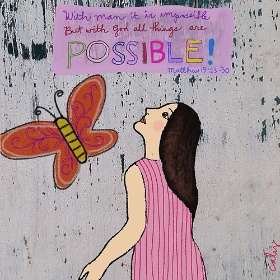 With man it is impossible
But with God all things are
POSSIBLE!
Matthew 19:23-30